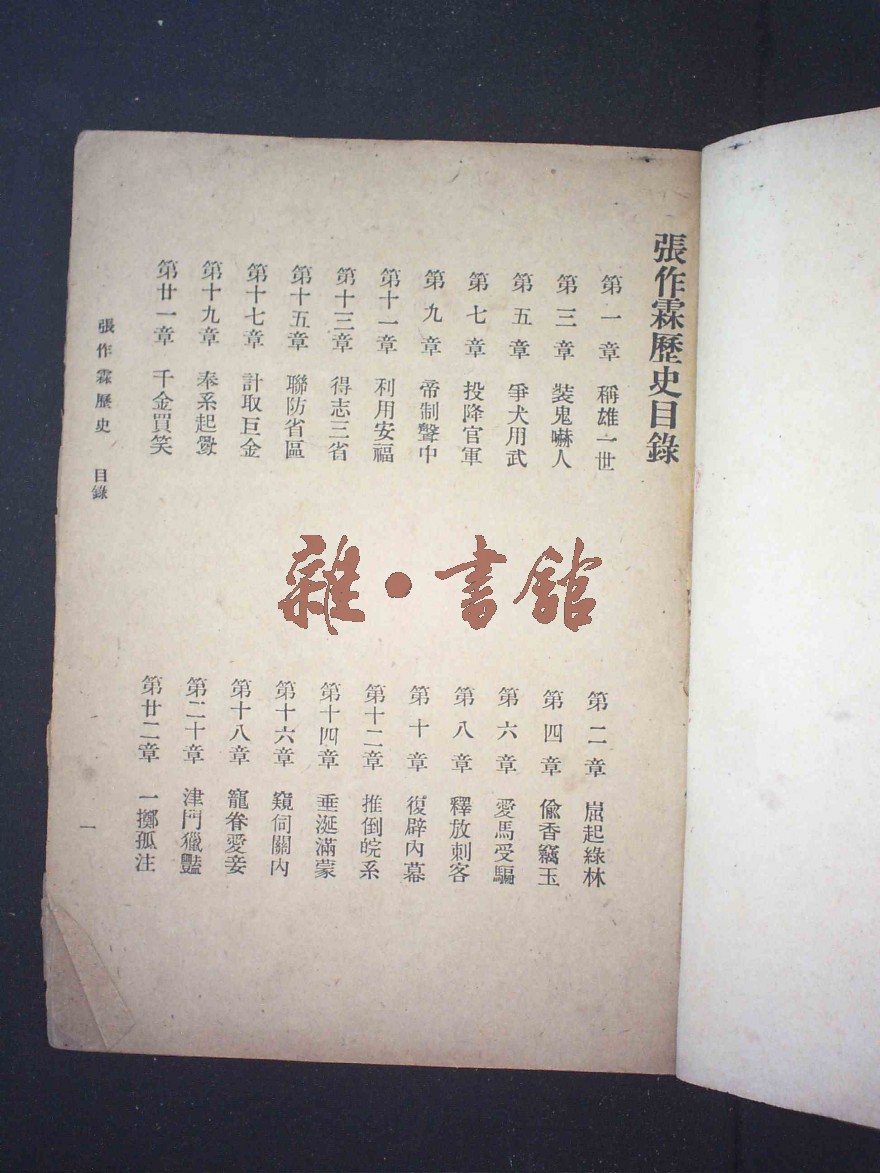 張作霖歷史目錄
第一章 稱雄一世
第二章 崛起綠林
第三章 裝鬼嚇人
第四章 偸香竊玉
第五章 爭犬用武
第六章 愛馬受騙
第七章 投降官軍
第八章 釋放刺客
第九章 帝制聲中
第十章 復辟內幕
第十一章 利用安福
第十二章 推倒皖系
第十三章 得志三省
第十四章 垂涎滿蒙
第十五章 聯防省區
第十六章 窺伺關內
第十七章 計取巨金
第十八章 寵眷愛妾
第十九章 奉系起釁
第二十章 津門獵豔
第廿一章 千金買笑
第廿二章 一擲孤注
張作霖歷史 目錄
一
雜·書館